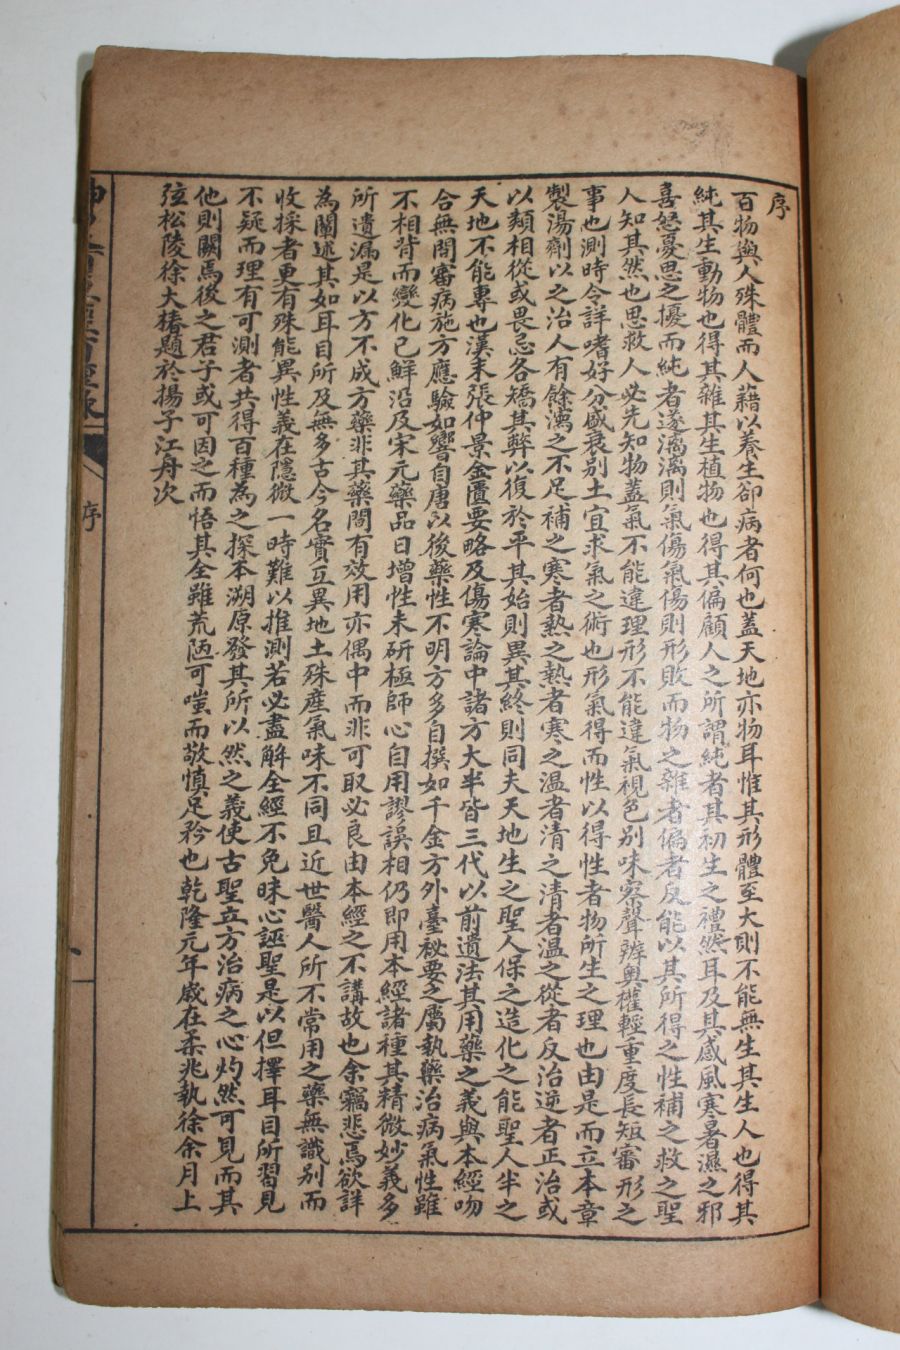 序
百物與人殊體而人藉以養生卻病者何也蓋天地亦物耳惟其形體至大則不能無生其生人也得其
純其生動物也得其雜其生植物也得其偏顧人之所謂純者其初生之禮然耳及其感風寒暑濕之邪
喜怒憂思之擾而純者遂漓漓則氣傷氣傷則形敗而物之雜者偏者反能以其所得之性補之救之聖
人知其然也思救人必先知物蓋氣不能違理形不能違氣視色別味察聲辨臭權輕重度長短審形之
事也測時令詳嗜好分盛衰別土宜求氣之術也形氣得而性以得性者物所生之理也由是而立本章
製湯劑以之治人有餘瀉之不足補之寒者熱之熱者寒之温者清之清者温之從者反治逆者正治或
以類相從或畏忌各矯其弊以復於平其始則異其終則同夫天地生之聖人保之造化之能聖人半之
天地不能專也漢末張仲景金匱要略及傷寒論中諸方大半皆三代以前遺法其用藥之義與本經吻
合無間審病施方應驗如響自唐以後藥性不明方多自撰如千金方外臺秘要之屬執藥治病氣性雖
不相背而變化已鮮沿及宋元藥品日增性未研極師心自用謬誤相仍即用本經諸種其精微妙義多
所遺漏是以方不成方藥非其藥間有效用亦偶中而非可取必良由本經之不講故也余竊悲焉欲詳
為闡述其如耳目所及無多古今名實互異地土殊產氣味不同且近世醫人所不常用之藥無識別而
收採者更有殊能異性義在隱微一時難以推測若必盡解全經不免昧心誣聖是以但擇耳目所習見
不疑而理有可測者共得百種為之探本溯原發其所以然之義使古聖立方治病之心灼然可見而其
他則闕焉後之君子或可因之而悟其全雖荒陋可嗤而敬慎足矜也乾隆元年歲在柔兆執徐余月上
弦松陵徐大椿題於揚子江舟次
序